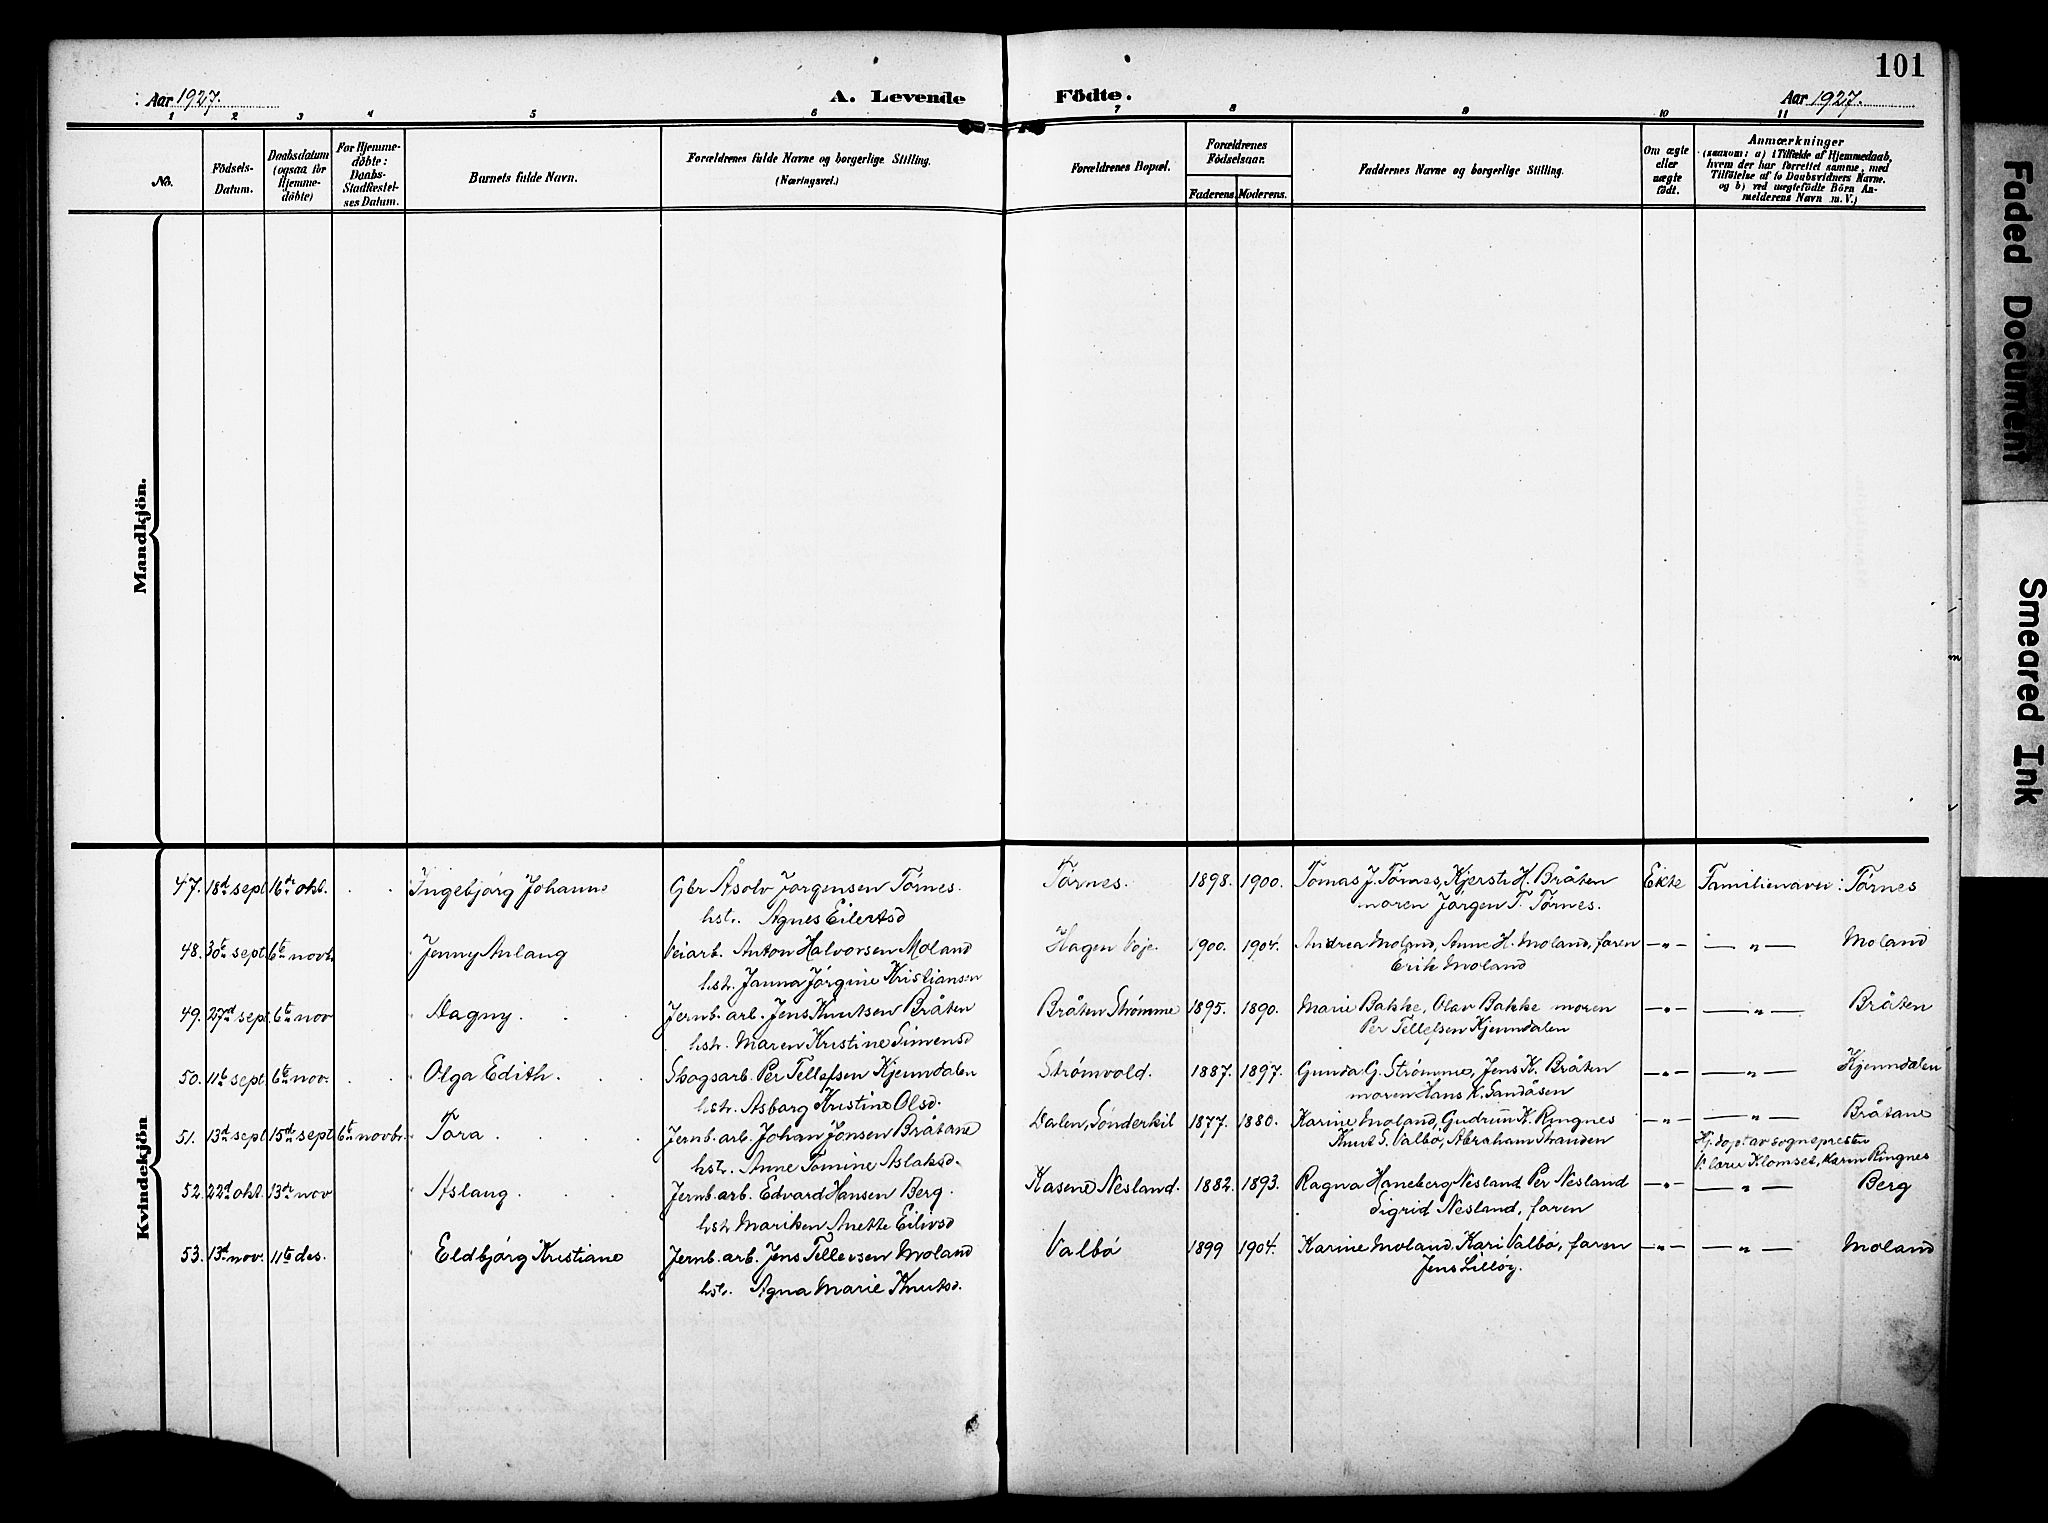 101
Aar 1927.
A. Levende
Födte.
Aar 1927.
1 2 3 4 5 6 7 8 9 10 11
No.
Födsels-
Datum.
Daabsdatum
(ogsaa for
Hjemme-
døbte)
For Hjemme-
døbte:
Daabs-
Stadfæstel-
ses Datum.
Barnets fulde Navn.
Forældrenes fulde Navne og borgerlige Stilling.
(Næringsvei.)
Forældrenes Bopæl.
Forældrenes
Födselsaar.
Faderens. Moderens.
Faddernes Navne og borgerlige Stilling.
Om ægte
eller
uægte
födt.
Anmærkninger
(saasom: a) i Tilfælde af Hjemmedaab,
hvem der har forrettet samme, med
Tilföielse af to Daabsvidners Navne.
og b) ved uægtefödte Börn An-
melderens Navn m. V.)
Mandkjön.
Kvindekjön
47. 18d. sept 16de okt. Ingebjørg Johanne Gbr Åsolv Jørgensen Törnes. Törnes. 1898. 1900. Tomas J. Törnes, Kjersti H. Bråten Ekte Familienavn: Törnes
hstr. Agnes Eilertsd moren Jørgen T. Törnes.
48. 30te sept. 6te novb. Jenny Aslaug Veiarb. Anton Halvorsen Moland Hagen Voje. 1900. 1904. Andrea Moland, Anne H. Moland, faren —„— — „ — Moland
hstr. Janna Jörgine Kristiansen Erik Moland
49. 27nd sept 6te nov Dagny. Jernb. arb. Jens Knutsen Bråten Bråten Strömme 1895. 1890. Marie Bakke, Olav Bakke moren —„— — „ — Bråten
hstr. Maren Kristine Simensd Per Tellefsen Kjenndalen
50. 11te sept 6te nov. Olga Edith. Skogsarb. Per Tellefsen Kjenndalen Strömvold. 1887. 1897. Gunda G. Strömme, Jens K. Bråten —„— — „ — Kjenndalen
hstr. Asbørg Kristine Olsd. moren Hans K. Sandåsen
51. 13d sept 15de sept 6te novbr. Tora Jernb. arb. Johan Jönsen Bråtane Dalen, Sönderkil 1877. 1880. Karine Moland, Gudrun K. Ringnes —„— — „ — Bråtane
hstr. Anne Tomine Aslaksd. Knut S. Valbö, Abraham Stranden Hj.döpt av sogneprestен
V. Klomset, Karin Ringnes
52. 22d okt. 13de nov Aslaug. Jernb. arb. Edvard Hansen Berg. Kasene Nesland. 1882. 1893. Ragna Haneberg Nesland, Per Nesland —„— — „ — Berg
hstr Mariken Anette Eilivsd Sigrid Nesland, faren
53. 13d nov. 11te des. Eldbjörg Kristiane Jernb. arb. Jens Tellevsen Moland Valbö 1899 1904. Karine Moland, Kari Valbö, faren —„— — „ — Moland
hstr. Agna Marie Knutsd. Jens Lilløy.
Faded Document
Smeared Ink